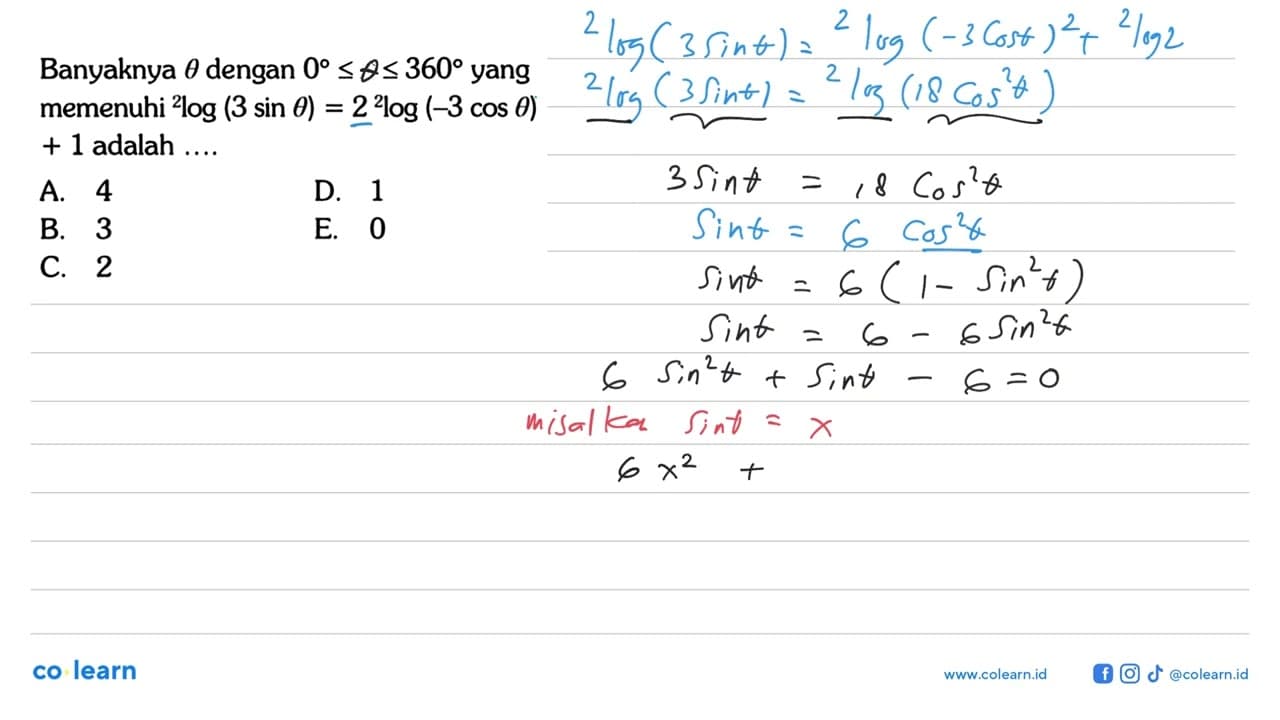 Banyaknya θ dengan 0° ≤ θ ≤ 360° yang
memenuhi ²log (3 sin θ) = 2 ²log (–3 cos θ)
+ 1 adalah ....
A. 4
B. 3
C. 2
D. 1
E. 0
²log(3 Sin θ) = ²log (-3 Cos θ)² + ²log 2
²log (3 Sin θ) = ²log (18 Cos²θ)
3 Sin θ = 18 Cos²θ
Sin θ = 6 Cos²θ
Sin θ = 6 (1 - Sin²θ)
Sin θ = 6 - 6 Sin²θ
6 Sin²θ + Sin θ - 6 = 0
misalkan Sin θ = x
6 x² +
co learn
www.colearn.id
@colearn.id